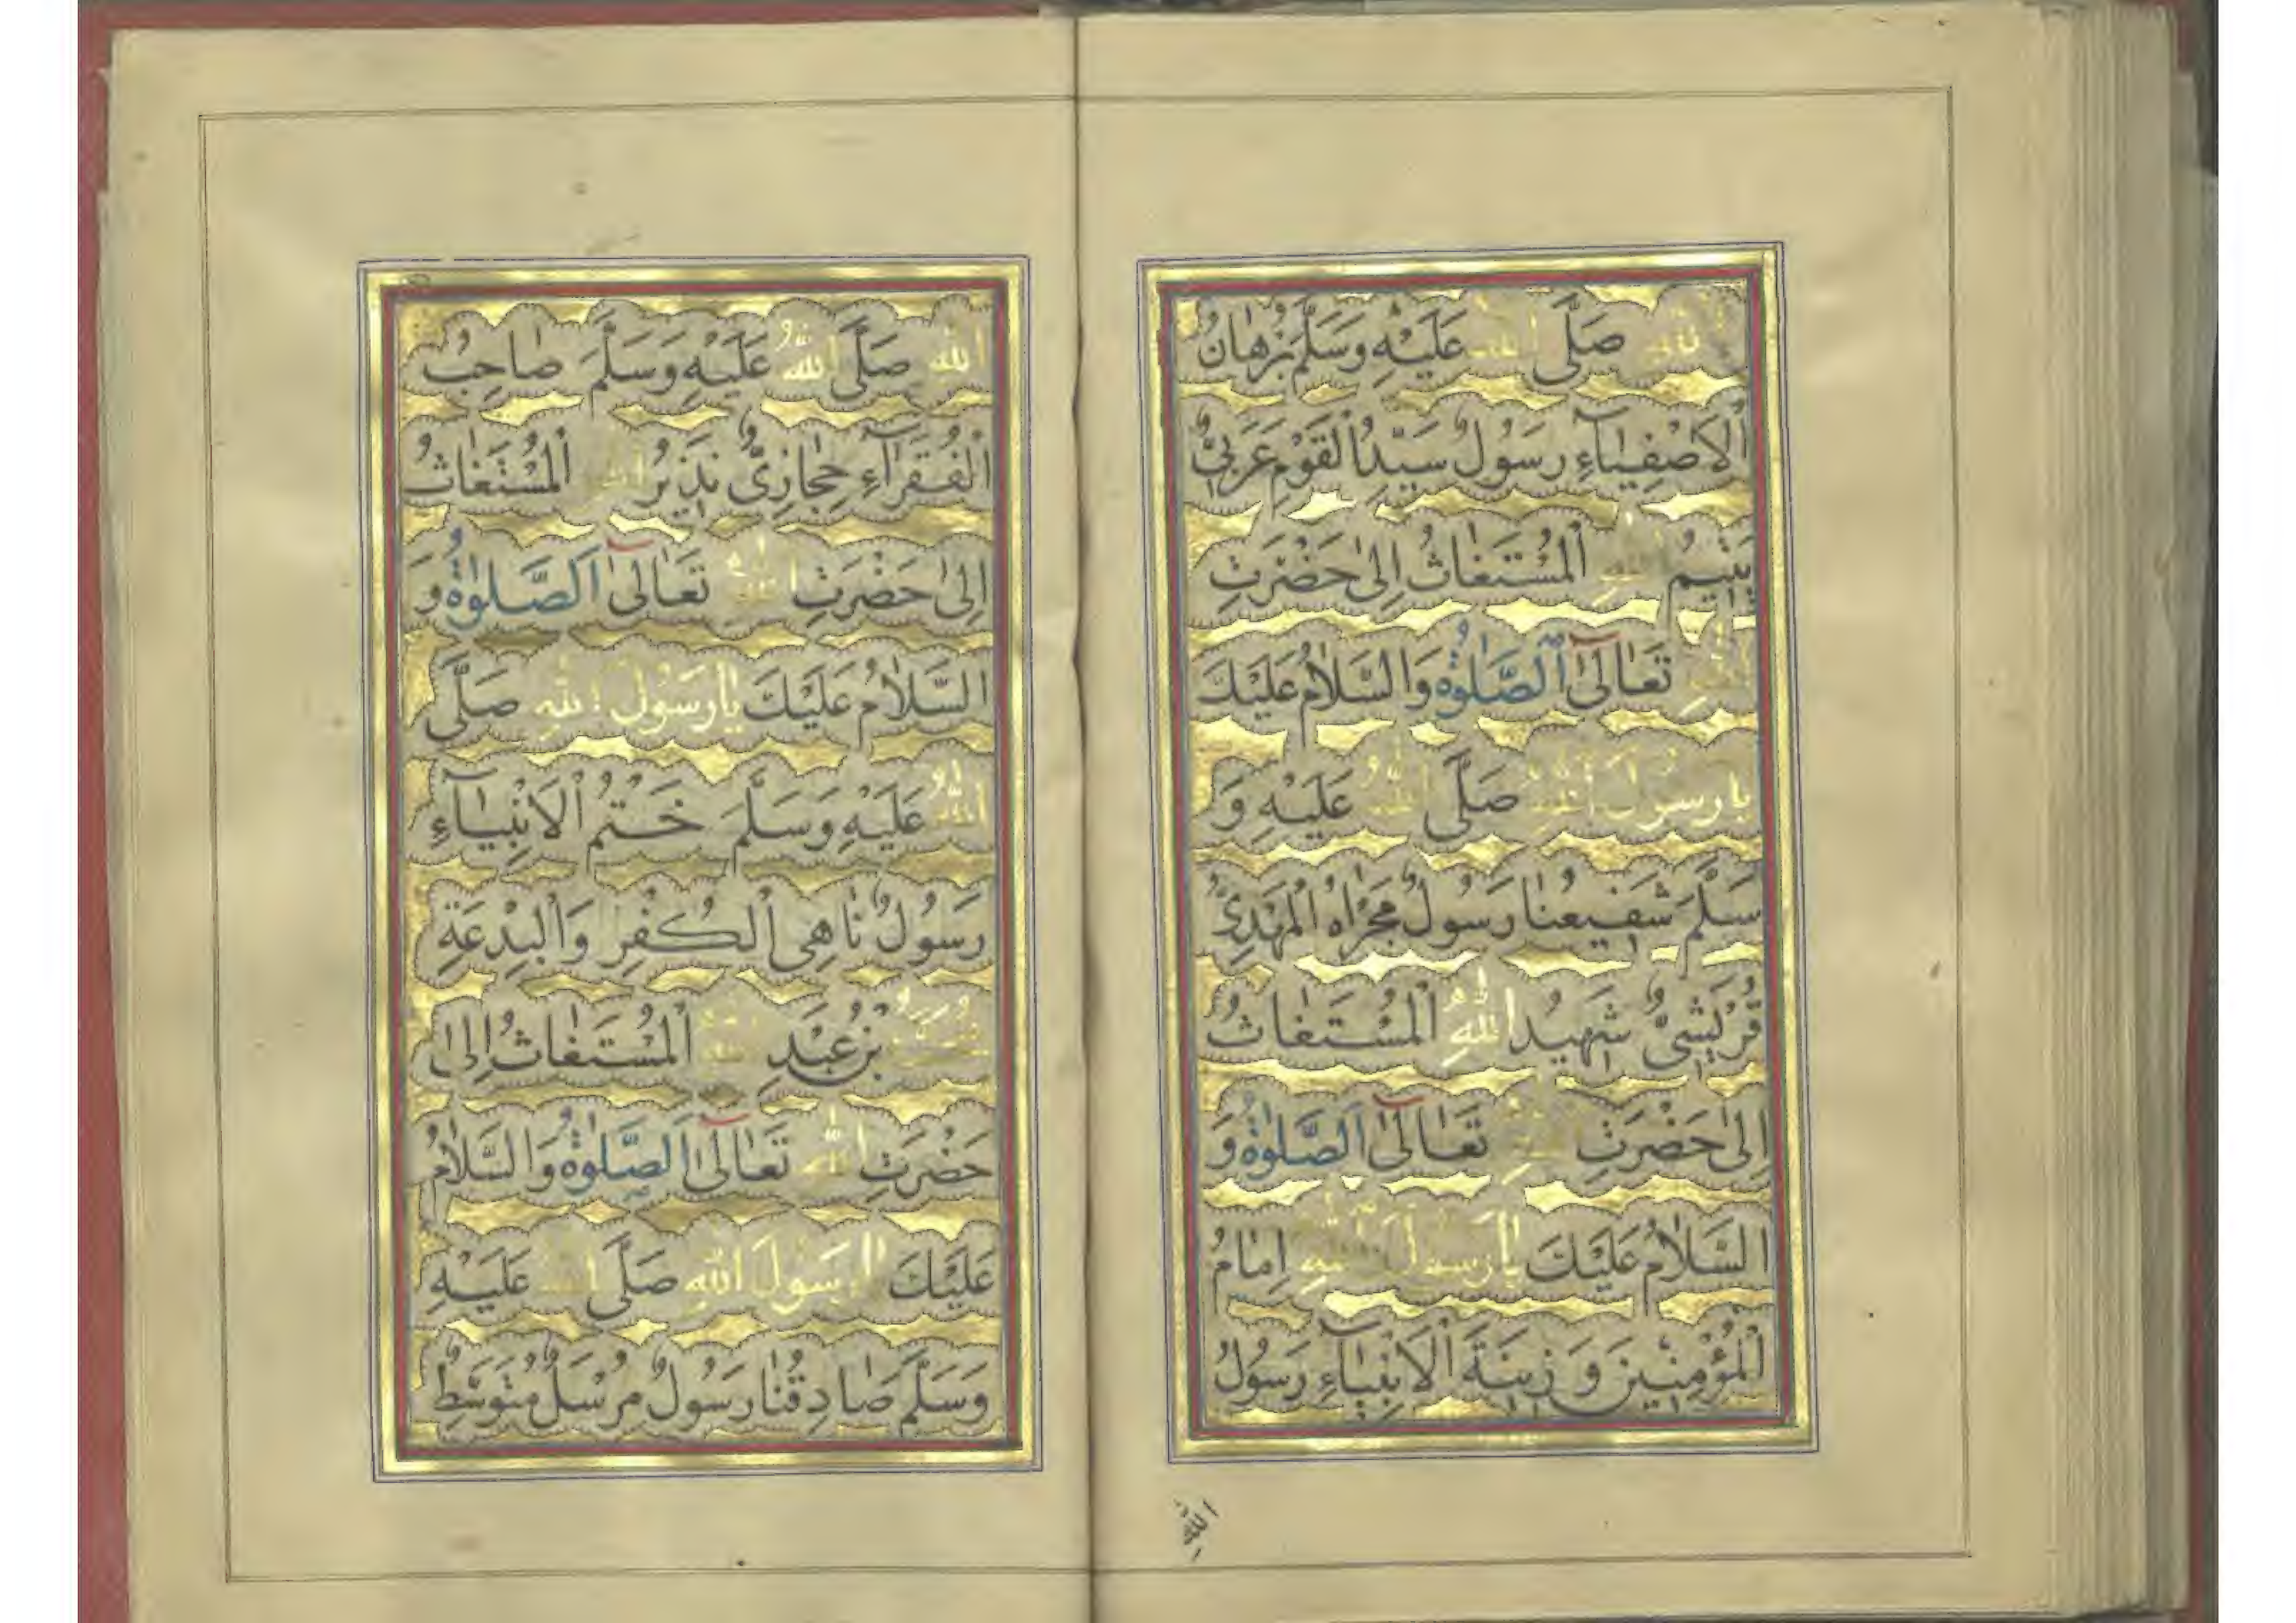 اللهِ صَلَّى اللهُ عَلَيْهِ وَسَلَّمَ بُرْهَانُ
الْاَصْفِيَآءِ رَسُوْلٌ سَيِّدُ الْقَوْمِ عَرَبِيٌّ
يَتِيْمُ اللهِ اَلْمُسْتَغَاثُ اِلٰى حَضْرَتِ
اللهِ تَعَالٰى اَلصَّلٰوةُ وَالسَّلَامُ عَلَيْكَ
يَارَسُوْلَ اللهِ صَلَّى اللهُ عَلَيْهِ وَ
سَلَّمَ شَفِيْعُنَا رَسُوْلٌ مَجْرَاهُ الْمَهْدِيُّ
قُرَيْشِيٌّ شَهِيْدُ اللهِ اَلْمُسْتَغَاثُ
اِلٰى حَضْرَتِ اللهِ تَعَالٰى اَلصَّلٰوةُ وَ
السَّلَامُ عَلَيْكَ يَارَسُوْلَ اللهِ اِمَامُ
الْمُؤْمِنِيْنَ وَ زِيْنَةَ الْاَنْبِيَآءِ رَسُوْلٌ
اللهِ
اللهِ صَلَّى اللهُ عَلَيْهِ وَسَلَّمَ صَاحِبُ
الْفُقَرَآءِ حِجَازِيٌّ نَذِيْرُ اللهِ اَلْمُسْتَغَاثُ
اِلٰى حَضْرَتِ اللهِ تَعَالٰى اَلصَّلٰوةُ وَ
السَّلَامُ عَلَيْكَ يَارَسُوْلَ اللهِ صَلَّى
اللهُ عَلَيْهِ وَسَلَّمَ خَتْمُ الْاَنْبِيَآءِ
رَسُوْلٌ نَاهِى الْكُفْرِ وَالْبِدْعَةِ
بْنُ عَبْدِ اللهِ اَلْمُسْتَغَاثُ اِلٰى
حَضْرَتِ اللهِ تَعَالٰى اَلصَّلٰوةُ وَالسَّلَامُ
عَلَيْكَ يَارَسُوْلَ اللهِ صَلَّى اللهُ عَلَيْهِ
وَسَلَّمَ صَادِقُنَا رَسُوْلٌ مُرْسَلٌ مُتَوَسِّطٌ